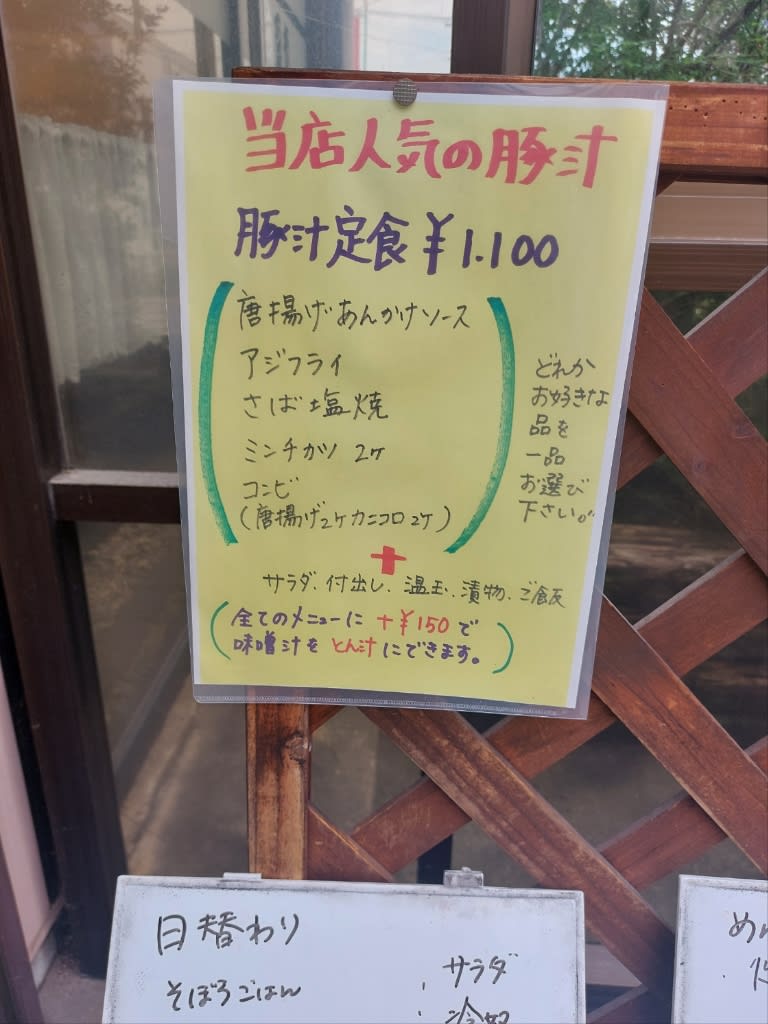 当店人気の豚汁
豚汁定食¥1.100
唐揚げあんかけソース
アジフライ
さば塩焼
ミンチカツ 2ヶ
コンビ
(唐揚げ2ヶカニコロ2ヶ)
どれか
お好きな
品を
一品
お選び
下さい。
+
サラダ、付出し、温玉、漬物、ご飯
(全てのメニューに +¥150で
味噌汁をとん汁にできます。)
日替わり
そぼろごはん
・サラダ
・冷奴
めん